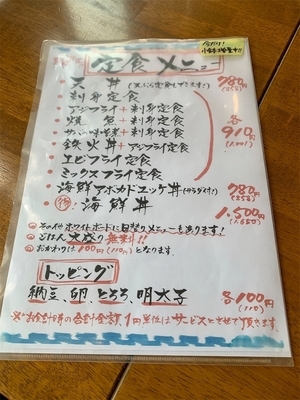 定食メニュー
天丼(天ぷら定食もできます!) 780円(858)
刺身定食
アジフライ+刺身定食
焼魚+刺身定食 各
サバ味噌煮+刺身定食 910円
鉄火丼+アジフライ定食 (1,001)
エビフライ定食
ミックスフライ定食
海鮮アボカドユッケ丼(サラダ付!) 780円(858)
特! 海鮮丼 1,500円(1,650)
その他ホワイトボードに日替りメニューもあります!
ごはん大盛り無料!!
おかわりは100円(110円)となります。
トッピング
納豆、卵、とろろ、明太子 各100円(110)
※お会計時の合計金額、1円単位はサービスとさせて頂きます。